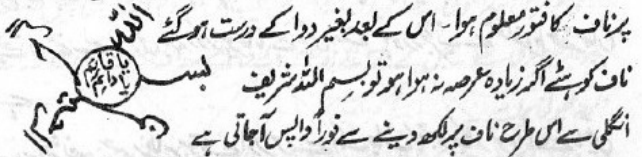 پر ناف کا فتور معلوم ہوا۔ اس کے بعد بغیر دوا کے درست ہو گئے
ناف کو ہٹے اگر زیادہ عرصہ نہ ہوا ہو تو بسم اللہ شریف
انگلی سے اس طرح ناف پر لکھ دینے سے فوراً واپس آجاتی ہے
اللہ
بسم